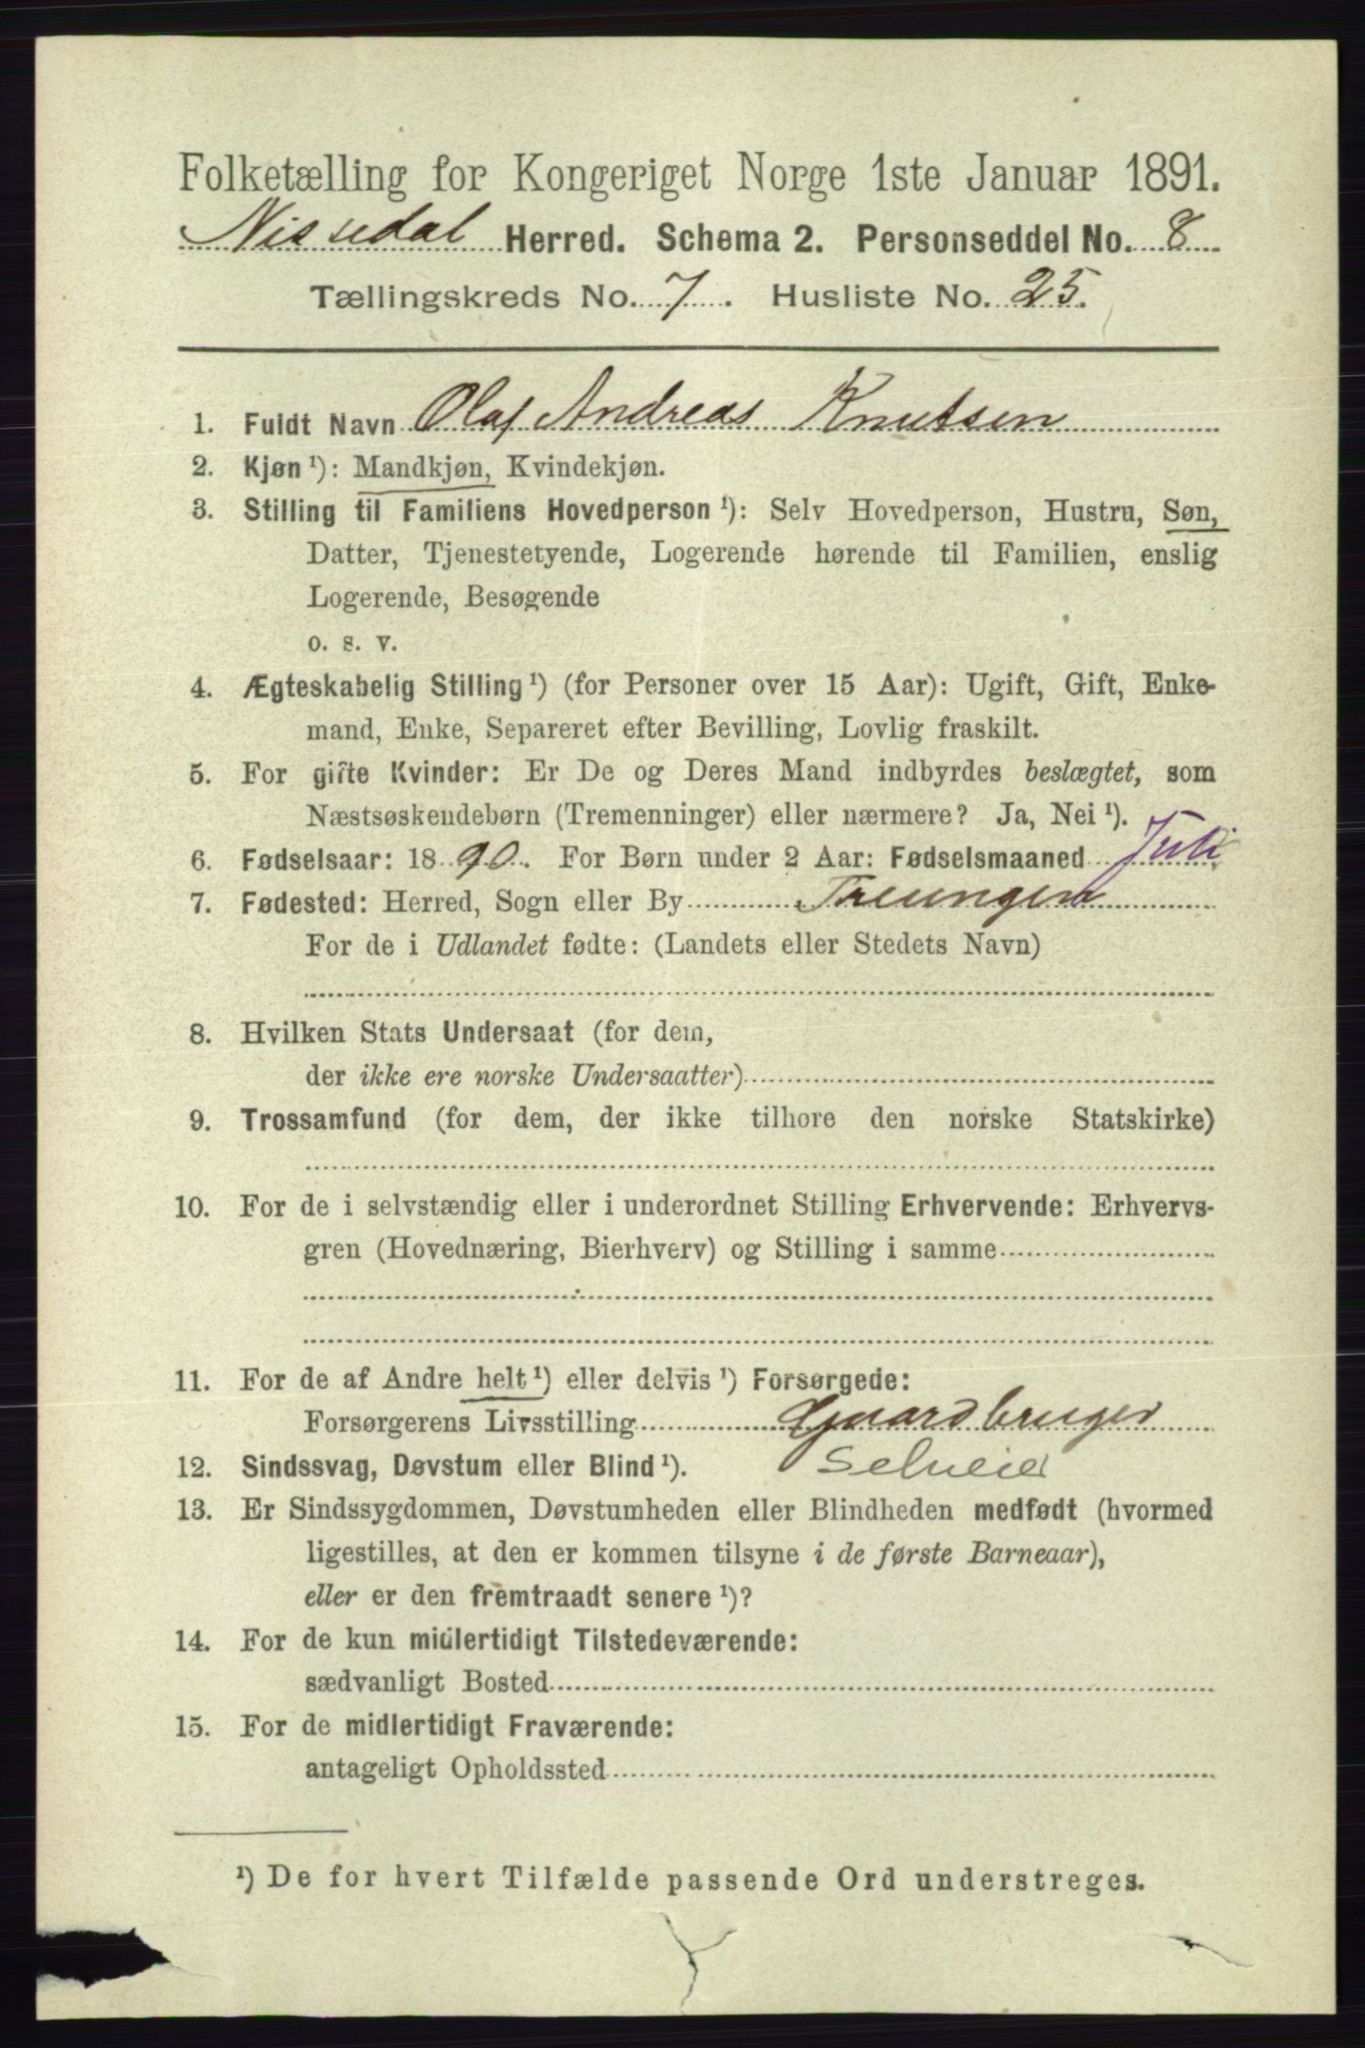 Folketælling for Kongeriget Norge 1ste Januar 1891.
Nissedal Herred. Schema 2. Personseddel No. 8
Tællingskreds No. 7. Husliste No. 25.
1. Fuldt Navn Olaf Andreas Knutsen
2. Kjøn ¹): Mandkjøn, Kvindekjøn.
3. Stilling til Familiens Hovedperson ¹): Selv Hovedperson, Hustru, Søn,
Datter, Tjenestetyende, Logerende hørende til Familien, enslig
Logerende, Besøgende
o. s. v.
4. Ægteskabelig Stilling ¹) (for Personer over 15 Aar): Ugift, Gift, Enke-
mand, Enke, Separeret efter Bevilling, Lovlig fraskilt.
5. For gifte Kvinder: Er De og Deres Mand indbyrdes beslægtet, som
Næstsøskendebørn (Tremenninger) eller nærmere? Ja, Nei ¹).
6. Fødselsaar: 1890. For Børn under 2 Aar: Fødselsmaaned Juli
7. Fødested: Herred, Sogn eller By Treungen
For de i Udlandet fødte: (Landets eller Stedets Navn)
8. Hvilken Stats Undersaat (for dem,
der ikke ere norske Undersaatter)
9. Trossamfund (for dem, der ikke tilhøre den norske Statskirke)
10. For de i selvstændig eller i underordnet Stilling Erhvervende: Erhvervs-
gren (Hovednæring, Bierhverv) og Stilling i samme
11. For de af Andre helt ¹) eller delvis ¹) Forsørgede:
Forsørgerens Livsstilling Gaardbruger
12. Sindssvag, Døvstum eller Blind ¹). Selveier
13. Er Sindssygdommen, Døvstumheden eller Blindheden medfødt (hvormed
ligestilles, at den er kommen tilsyne i de første Barneaar),
eller er den fremtraadt senere ¹)?
14. For de kun midlertidigt Tilstedeværende:
sædvanligt Bosted
15. For de midlertidigt Fraværende:
antageligt Opholdssted
¹) De for hvert Tilfælde passende Ord understreges.